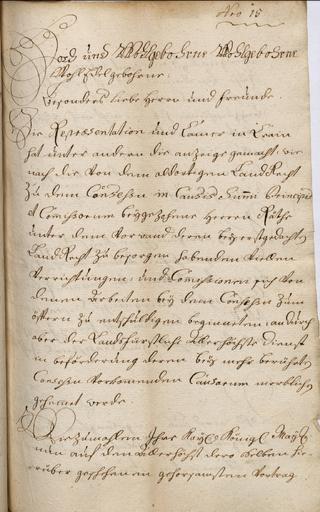 Nro 15
Hoch und Wohlgebohrne Wohlgebohrne
Wohl Edlgebohrne
besonders liebe Herrn und Freunde
Die Repræsentation und Cam̄er in Crain
hat unter andern die anzeige gemacht, wie
nach die von dem aldortigen Land Recht
zu dem Consessu in Causis Sum̄i Principis
et Com̄issorum beygezohene Herren Räthe
unter dem Vorwand deren bey erstgedachten
Land Recht zu besorgen habenden vielen
Verrichtungen und Com̄issionen sich von
denen Arbeiten bey dem Consessu zum
öfftern zu entschuldigen beginneten, andurch
aber der Landsfürstliche Allerhöchste Dienst
in beförderung deren bey mehr berührten
Consessu vorkommenden Causarum merklich
gehemet werde
Allermaßen Ihro Kayl. Königl. May:
nun auf den allerhöchst dero selben hier
über geschehenen gehorsamsten Vortrag